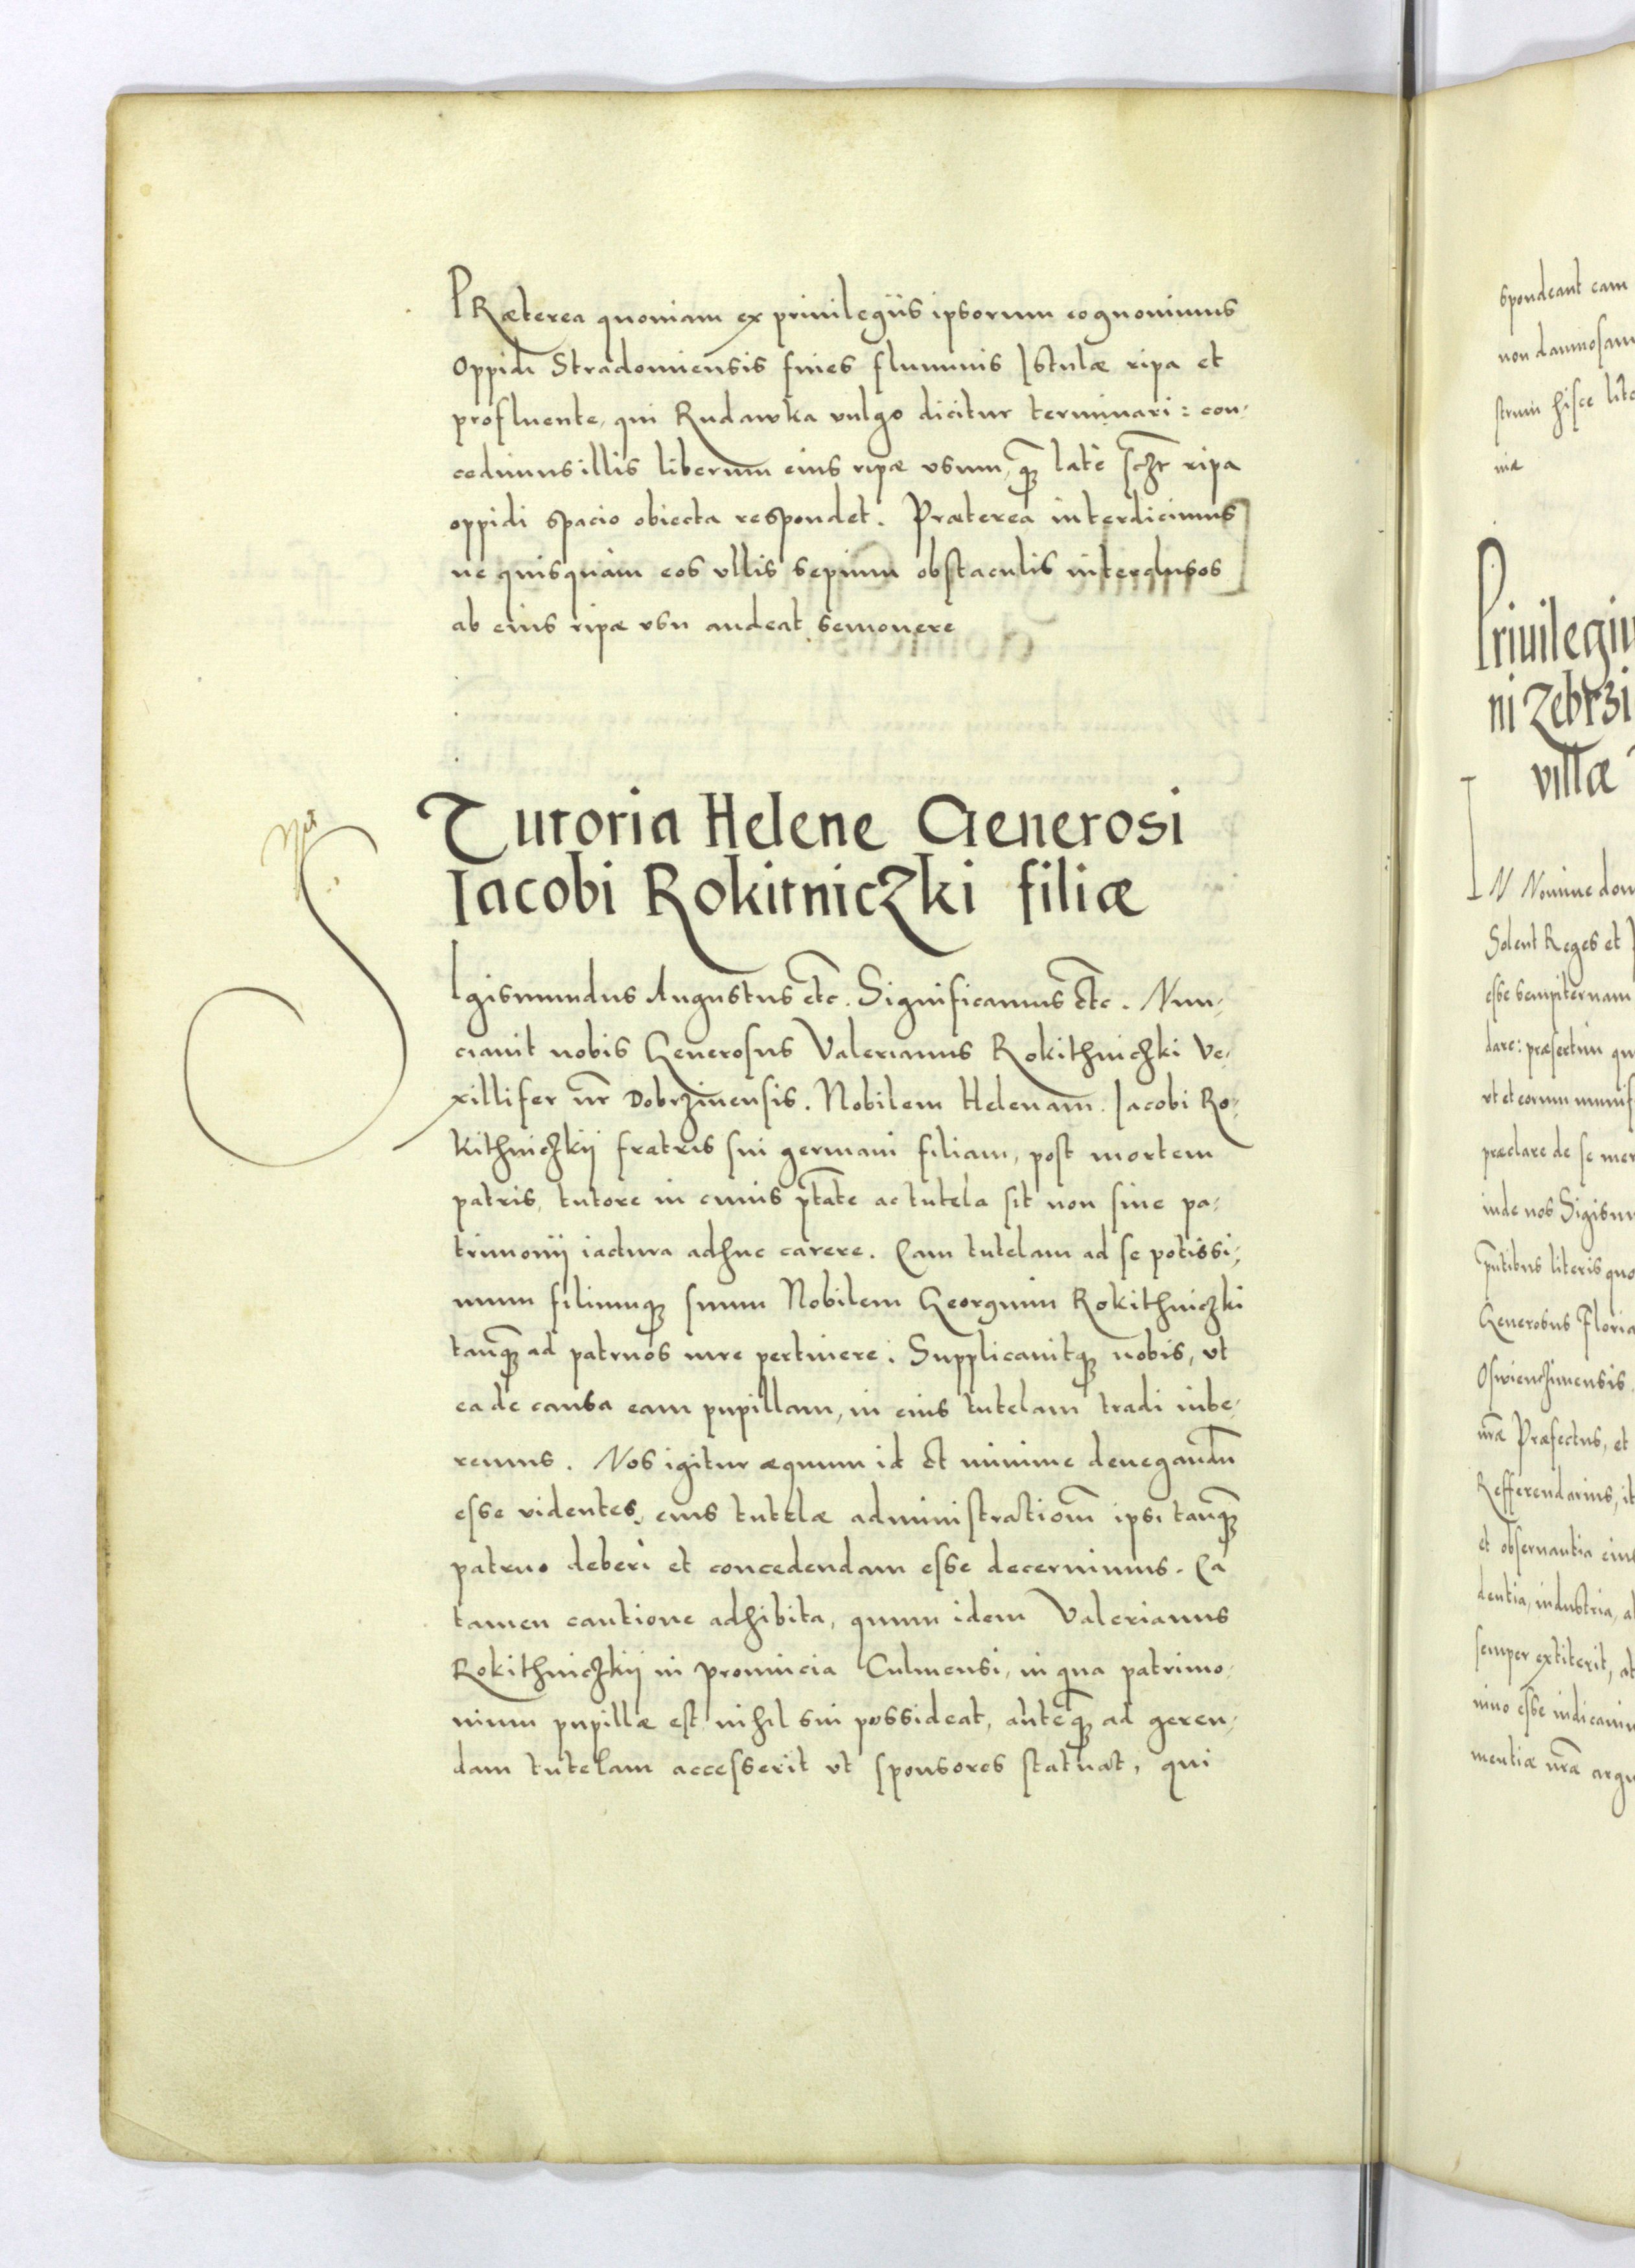 PRæterea quoniam ex priuilegijs ipsorum cognouimus
Oppidi Stradomiensis fines fluminis Istulæ ripa et
profluente, qui Rudawka vulgo dicitur terminari: con-
cedimus illis liberum eius ripæ vsum, q̃ȝ latè ripa
oppidi spacio obiecta respondet. Præterea interdicimus
ne quisquàm eos vllis sepium obstaculis interclusos
ab eius ripæ vsu audeat semouere
Tutoria Helene Generosi
Iacobi Rokitniczki filiæ
SIgismundus Augustus etc̃. Significamus etc̃. Nun-
ciauit nobis Generosus Valerianus Rokithniczki Ve-
xillifer nr̃ Dobrzinensis. Nobilem Helenam. Iacobi Ro-
kithniczkij fratris sui germani filiam, post mortem
patris, tutore in cuius ptãte ac tutela sit non sine pa-
trimonij iactura adhuc carere. Eam tutelam ad se potissi-
mum filiumqȝ suum Nobilem Georgium Rokithniczki
tanq̃ȝ ad patruos iure pertinere. Supplicauitqȝ nobis, vt
ea de causa eam pupillam, in eius tutelam tradi iube-
remus. Nos igitur æquum id et minime denegandũ
esse videntes, eius tutelæ administrationẽ ipsi tanq̃ȝ
patruo deberi et concedendam esse decernimus. Ea
tamen cautione adhibita, quum idem Valerianus
Rokithniczkij in prouincia Culmensi, in qua patrimo-
nium pupillæ est, nihil sui possideat, anteq̃ȝ ad geren-
dam tutelam accesserit vt sponsores statuat, qui
spondeant eam
non damnosam
strum hisce
niæ
Priuilegiu
ni Zebrzi
villæ
IN Nomine dom
Solent Reges et
esse sempiternam
dare: præsertim qu
vt et eorum munif
præclare de se mer
inde nos Sigism
pñtibus literis quo
Generosus Floria
Oswienczimensis.
nrã Præfectus, et
Refferendarius, it
et obseruantia eius
dentia, industria, a
semper extiterit, at
nino esse iudicauim
mentiæ nrã argu